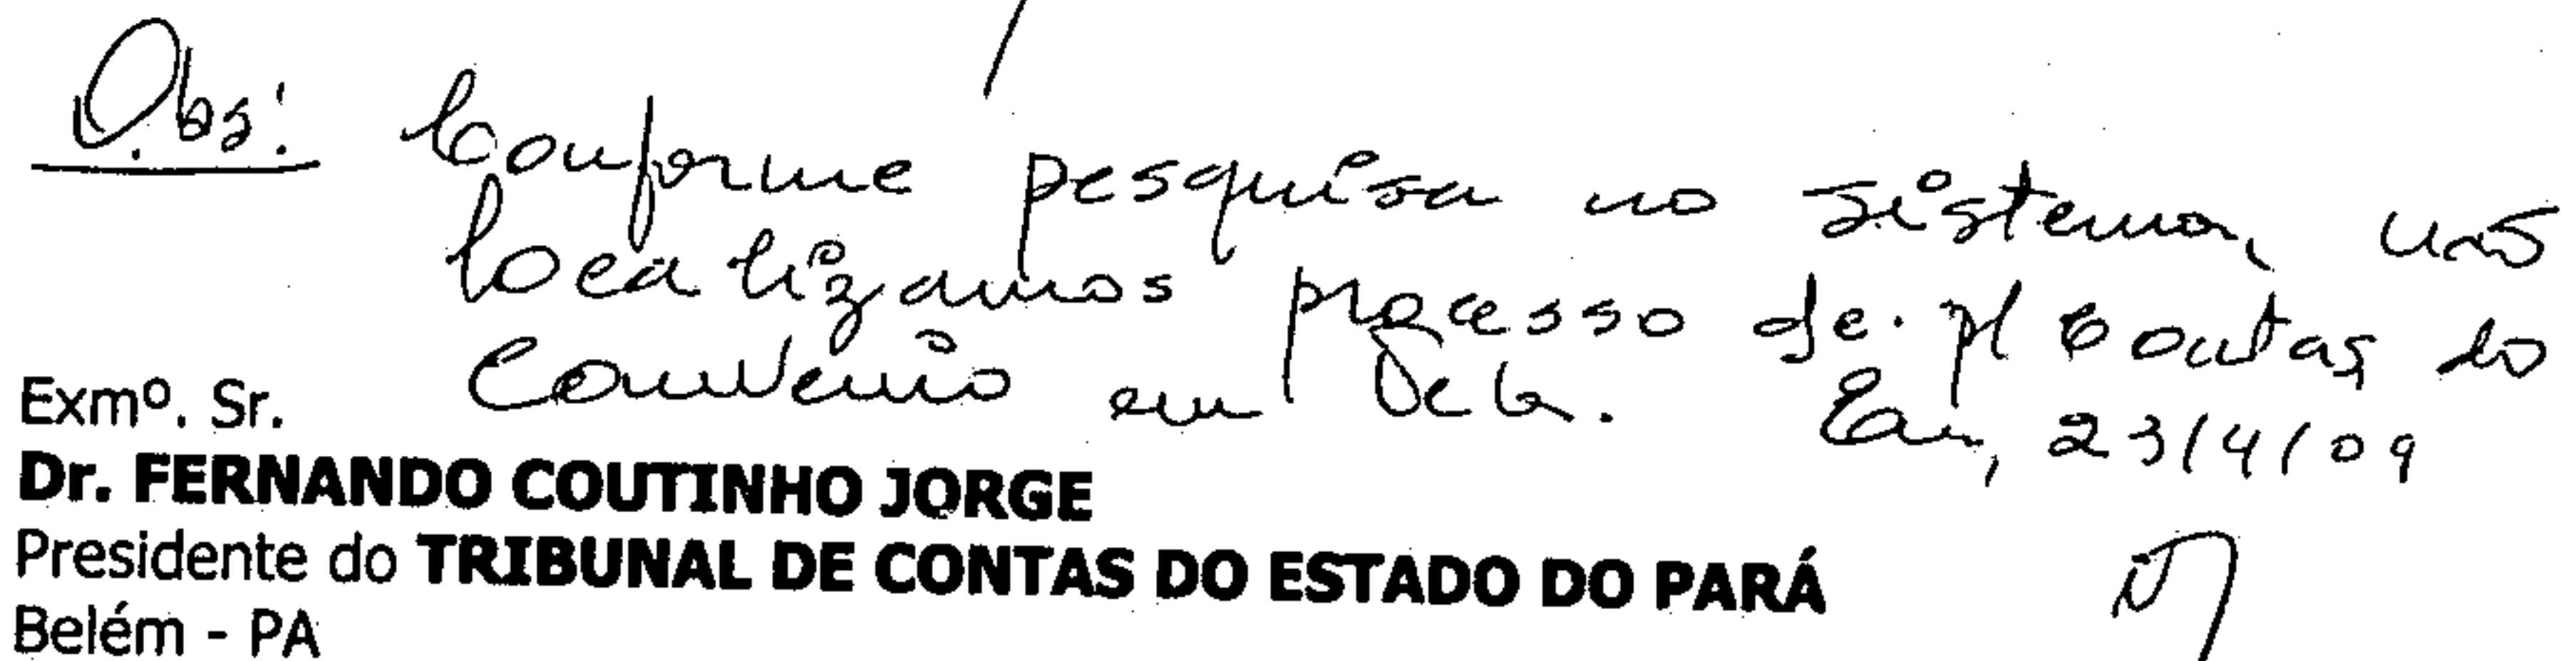 Obs: Conforme pesquisa no sistema, não
localizamos processo de p/ Contas do
Convênio em tela. Em, 23/4/09
Exmº. Sr.
Dr. FERNANDO COUTINHO JORGE
Presidente do TRIBUNAL DE CONTAS DO ESTADO DO PARÁ
Belém - PA